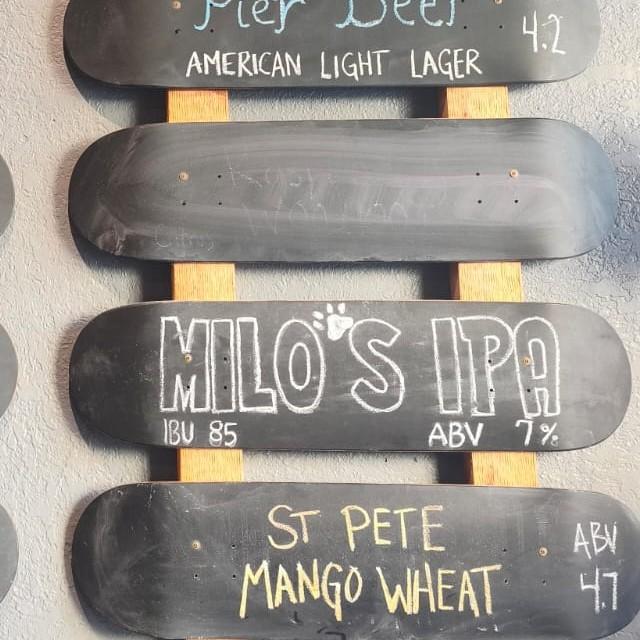 Pier Beer
4.2
AMERICAN LIGHT LAGER
MILO'S IPA
IBU 85 ABV 7%
ST PETE
MANGO WHEAT
ABV
4.7